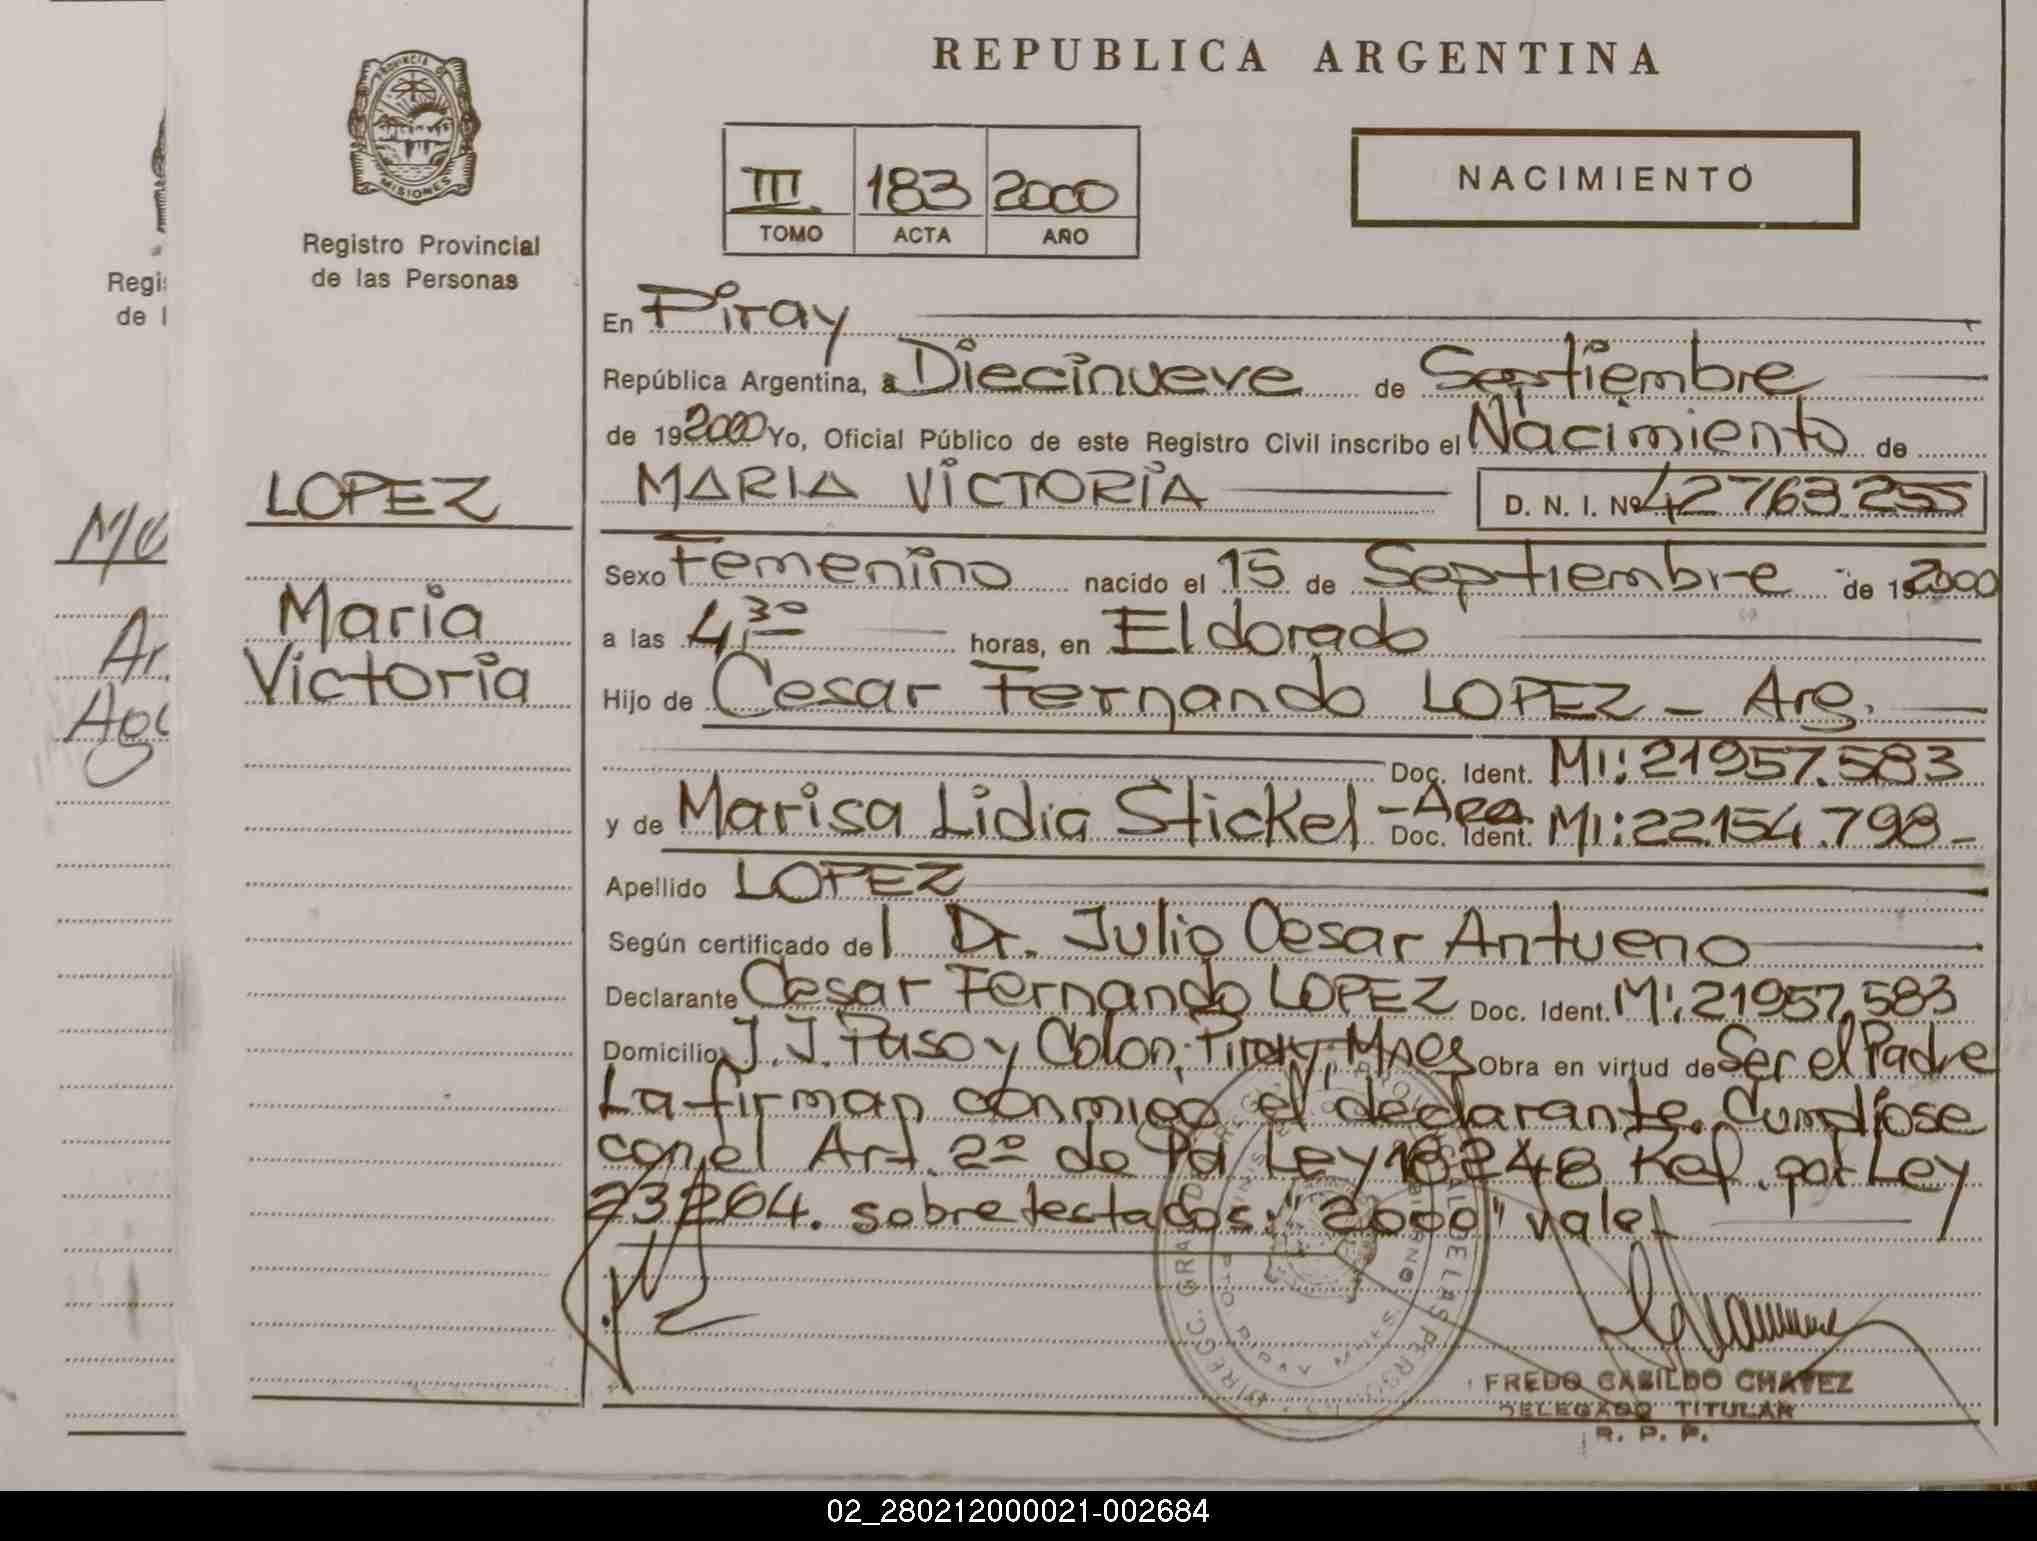 REPUBLICA ARGENTINA
PROVINCIA DE
MISIONES
Registro Provincial
de las Personas
III 183 2000
TOMO ACTA AÑO
NACIMIENTO
En Piray
República Argentina, a Diecinueve de Septiembre
de 192000 Yo, Oficial Público de este Registro Civil inscribo el Nacimiento de
LOPEZ
MARIA VICTORIA D. N. I. Nº 42763255
Maria
Victoria
Sexo Femenino nacido el 15 de Septiembre de 192000
a las 4,30 horas, en Eldorado
Hijo de Cesar Fernando LOPEZ - Arg.
Doc. Ident. MI: 21957.583
y de Marisa Lidia Stickel - Arg. Doc. Ident. MI: 22.154.798-
Apellido LOPEZ
Según certificado del Dr. Julio Cesar Antueno
Declarante Cesar Fernando LOPEZ Doc. Ident. MI: 21957.583
Domicilio J.J. Paso y Colon, Piray, Mnes Obra en virtud de Ser el Padre
La firman conmigo el declarante. Cumpliose
con el Art. 2º de la Ley 18248 Ref. por Ley
23264. sobretestados: "2000" vale
FREDO CASILDO CHAVEZ
DELEGADO TITULAR
R. P. P.
02_280212000021-002684